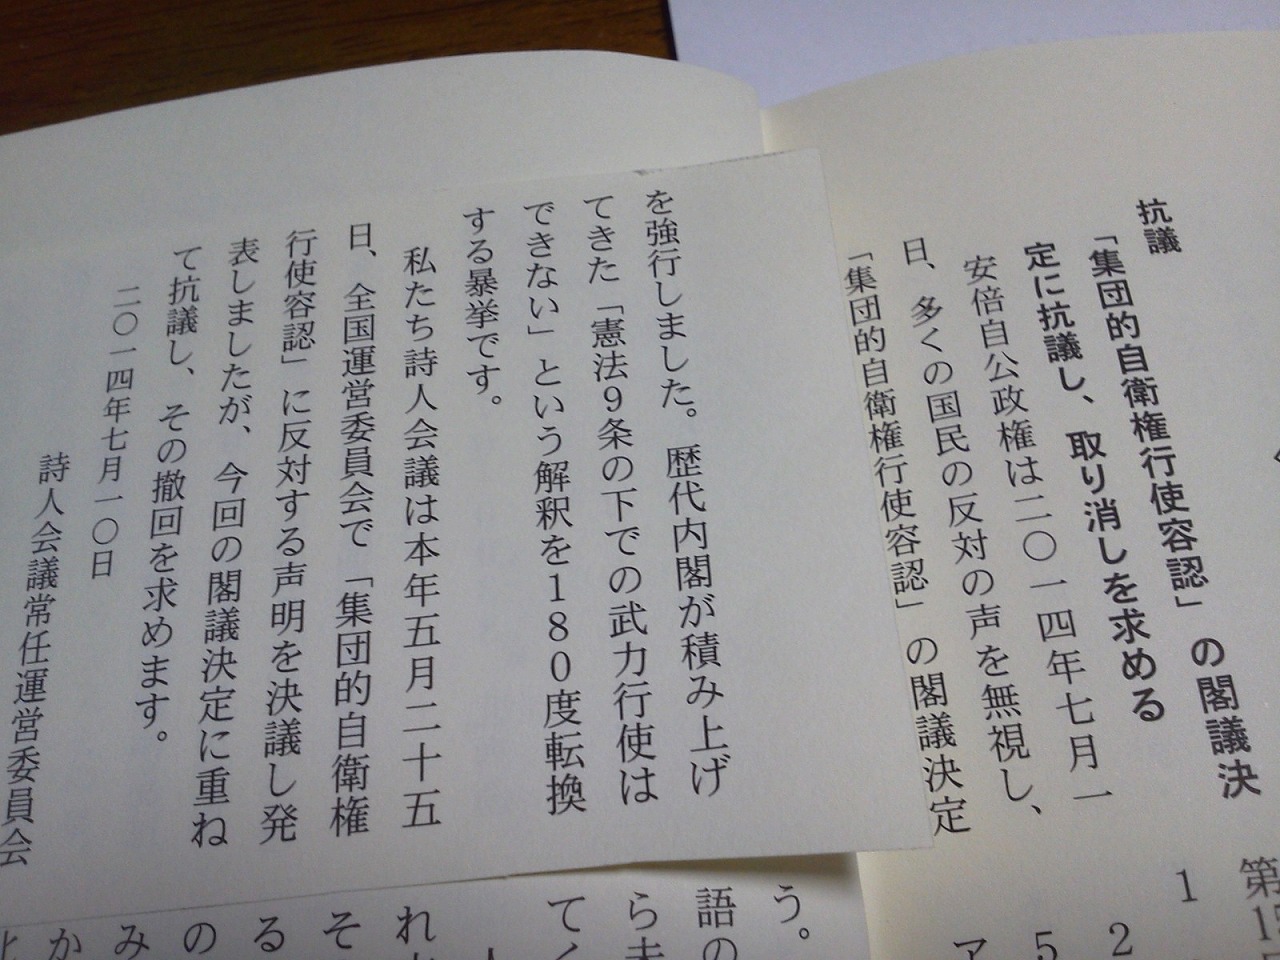 抗議
「集団的自衛権行使容認」の閣議決
定に抗議し、取り消しを求める
安倍自公政権は二〇一四年七月一
日、多くの国民の反対の声を無視し、
「集団的自衛権行使容認」の閣議決定
を強行しました。歴代内閣が積み上げ
てきた「憲法9条の下での武力行使は
できない」という解釈を180度転換
する暴挙です。
私たち詩人会議は本年五月二十五
日、全国運営委員会で「集団的自衛権
行使容認」に反対する声明を決議し発
表しましたが、今回の閣議決定に重ね
て抗議し、その撤回を求めます。
二〇一四年七月一〇日
詩人会議常任運営委員会
第
1
2
5
ア
う。
語の
ら
て
れ
そ
る
の
み
か